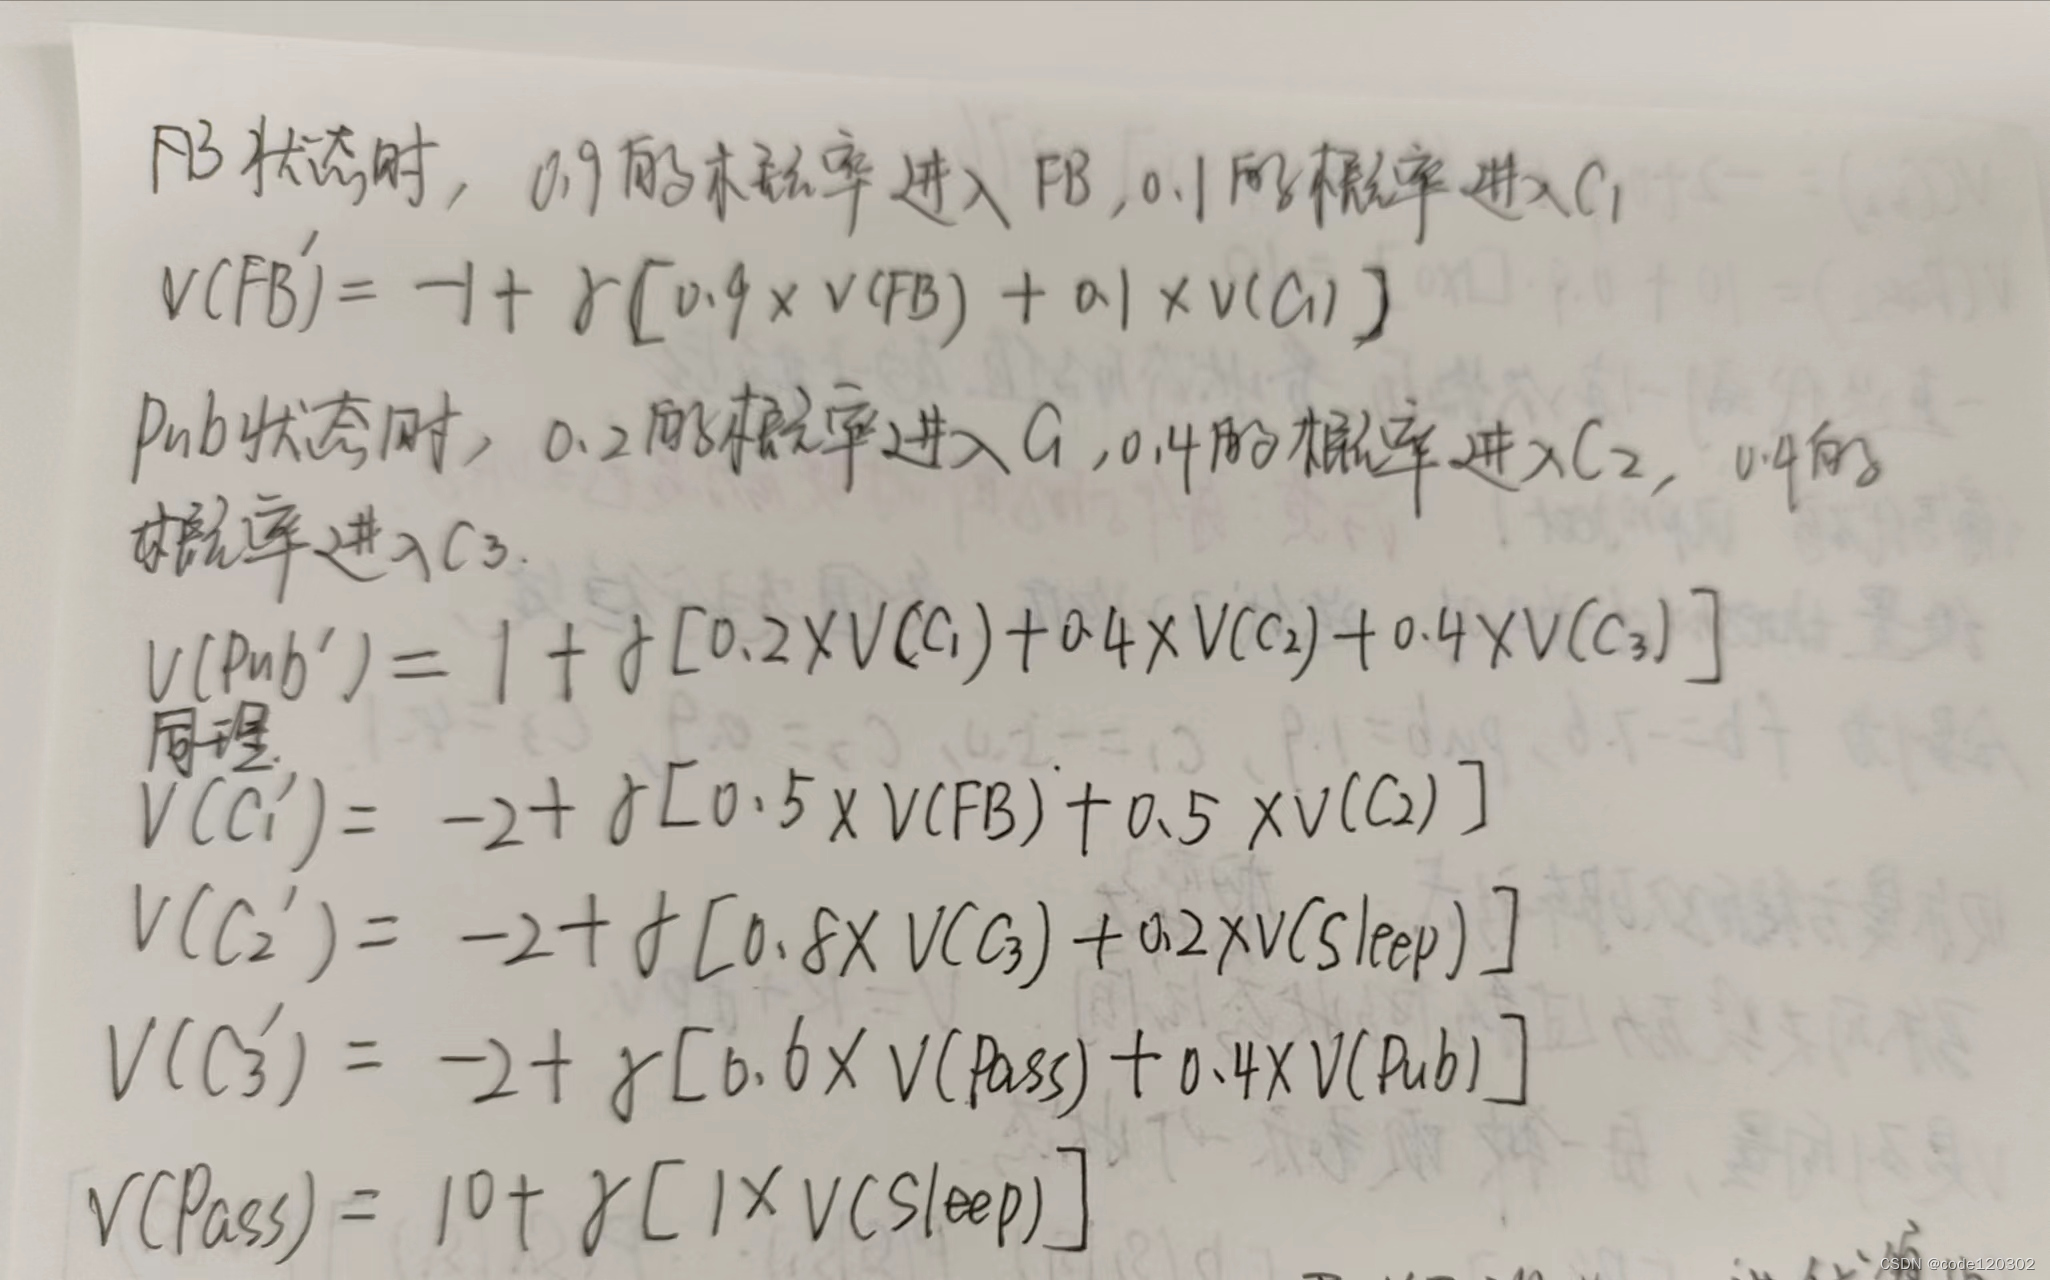 FB状态时，0.9的概率进入FB，0.1的概率进入C1
V(FB')= -1+ γ[0.9×V(FB)+0.1×V(C1)]
Pub状态时，0.2的概率进入C1，0.4的概率进入C2，0.4的
概率进入C3.
V(Pub')= 1+γ[0.2×V(C1)+0.4×V(C2)+0.4×V(C3)]
同理.
V(C1')= -2+γ[0.5×V(FB)+0.5×V(C2)]
V(C2')= -2+γ[0.8×V(C3)+0.2×V(Sleep)]
V(C3')= -2+γ[0.6×V(Pass)+0.4×V(Pub)]
V(Pass)= 10+γ[1×V(Sleep)]
CSDN @code120302